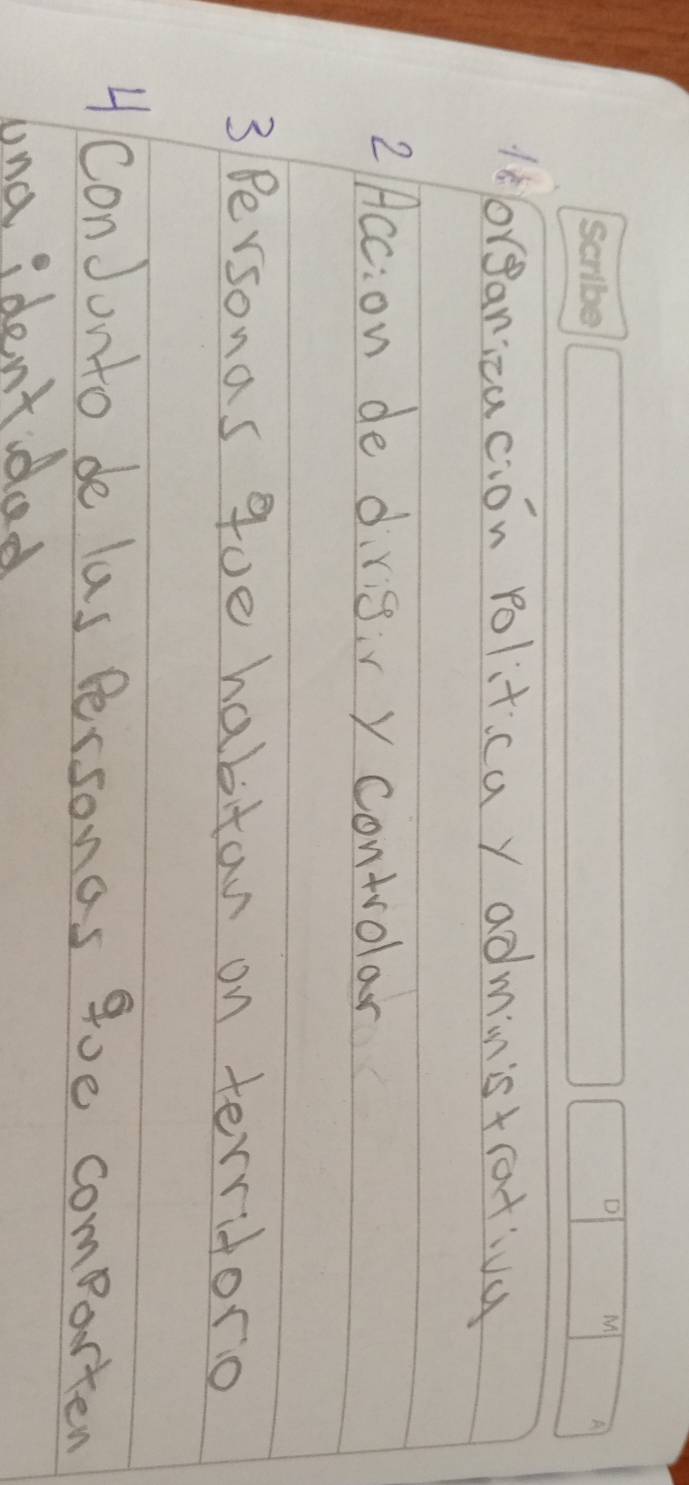 Scribe
D M A
1 organización Politica y administrativa
2 Accion de dirigir y controlar
3 Personas que habitan on territorio
4 Conjunto de las Personas que comParten
una identidad